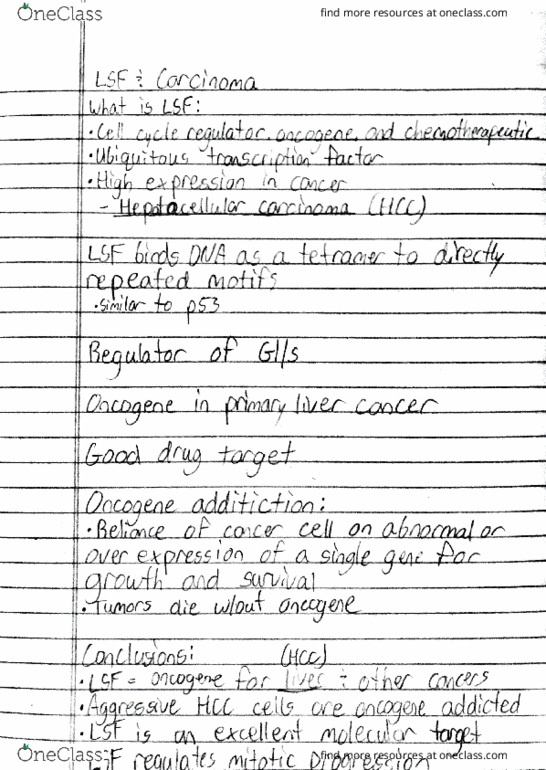 OneClass find more resources at oneclass.com
LSF & Carcinoma
What is LSF:
• Cell cycle regulator, oncogene, and chemotherapeutic
• Ubiquitous transcription factor
• High expression in cancer
- Hepatacellular carcinoma (HCC)
LSF binds DNA as a tetramer to directly
repeated motifs
• similar to p53
Regulator of G1/s
Oncogene in primary liver cancer
Good drug target
Oncogene additiction:
• Reliance of cancer cell on abnormal or
over expression of a single gene for
growth and survival
• Tumors die w/out oncogene
Conclusions: (HCC)
• LSF = oncogene for liver & other cancers
• Aggressive HCC cells are oncogene addicted
• LSF is an excellent molecular target
OneClass find more resources at oneclass.com
regulates mitotic progression